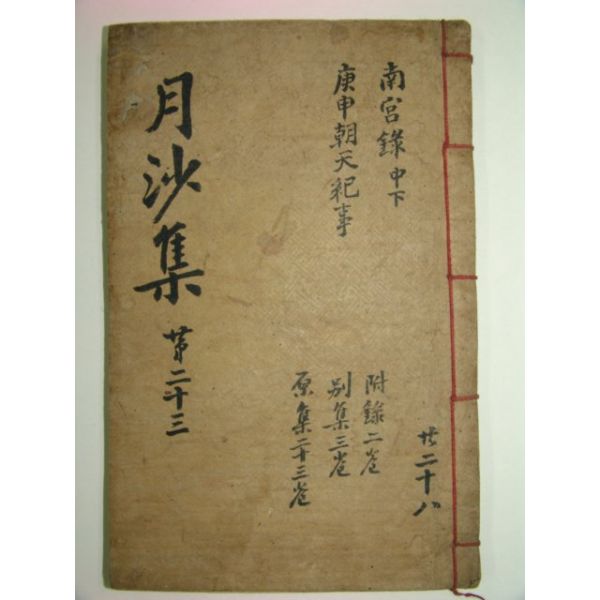 南宮錄 中下
庚申朝天紀事
月沙集 苐二十三
附錄二卷
別集三卷
原集二十三卷
共二十八